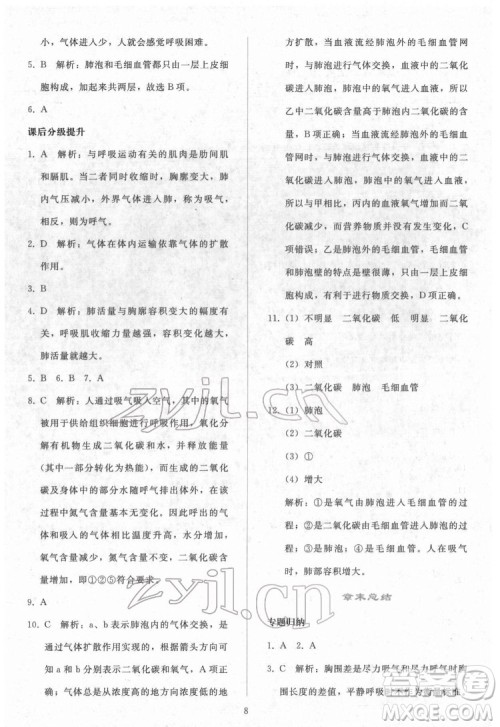 小，气体进入少，人就会感觉呼吸困难。
5. B　解析：肺泡和毛细血管都只由一层上皮细
胞构成，加起来共两层，故选 B 项。
6. A
课后分级提升
1. A　解析：与呼吸运动有关的肌肉是肋间肌
和膈肌。当二者同时收缩时，胸廓扩大，肺
内气压减小，外界气体进入肺，称为吸气，
相反，则为呼气。
2. D　解析：气体在体内运输依靠气体的扩散
作用。
3. B
4. D　解析：肺活量与胸廓容积变化的幅度有
关，呼吸肌越强壮，胸廓容积变化越大，肺
活量就越大。
5. B　6. B　7. A
8. C　解析：人通过吸气吸入空气，其中的氧气
被用于供给组织细胞进行呼吸作用，氧化分
解有机物生成二氧化碳和水，并释放能量。
在这一过程中消耗了氧气，生成的二氧化碳
以及身体中的部分水随呼气排出体外。而
在该过程中氮气没有参与。所以人呼出的
气体和吸入的气体相比，二氧化碳含量增
加、氧气含量减少，氮气含量不变，水含量增
加，即①②⑤符合题意。
9. A
10. C　解析：a、b 表示肺泡内的气体交换，是通
过气体扩散作用实现的；根据箭头方向可
知 a 和 b 表示的气体分别是二氧化碳和氧
气，气体总是从浓度高的地方向浓度低的地
方扩散，当血液流经肺泡外的毛细血管网
时，与肺泡进行气体交换，血液中的二氧化
碳进入肺泡，肺泡内的氧气进入血液，因此
乙中二氧化碳含量大于肺泡内二氧化碳的
含量，B项正确；当血液流经肺泡外的毛细
血管网时，与肺泡进行气体交换，血液中的
二氧化碳进入肺泡，肺泡内的氧气进入血液，
所以丙与甲相比，丙中氧气含量增加，二氧
化碳含量减少，而营养物质的含量没变，C
项错误；肺泡外面包绕着丰富的毛细血管，
毛细血管的特点和肺泡壁的特点都是只由
一层上皮细胞构成，这有利于肺泡与血液
进行气体交换，D项正确。
11. (1) 不明显　二氧化碳　低　明显　二氧化
碳　高
(2) 对照
(3) 二氧化碳　肺泡　毛细血管
12. (1) 肺泡
(2) 二氧化碳
(3) ①
(4) 增大
解析：①是氧气由肺泡进入毛细血管；②是
二氧化碳由毛细血管进入肺泡；③是肺泡；
④是毛细血管。
章末总结
专题归纳
1. A　2. A
3. C　解析：胸围差是尽力吸气和尽力呼气时胸
围长度的差值，平静呼吸
8
zyjl.cn
zyjl.cn